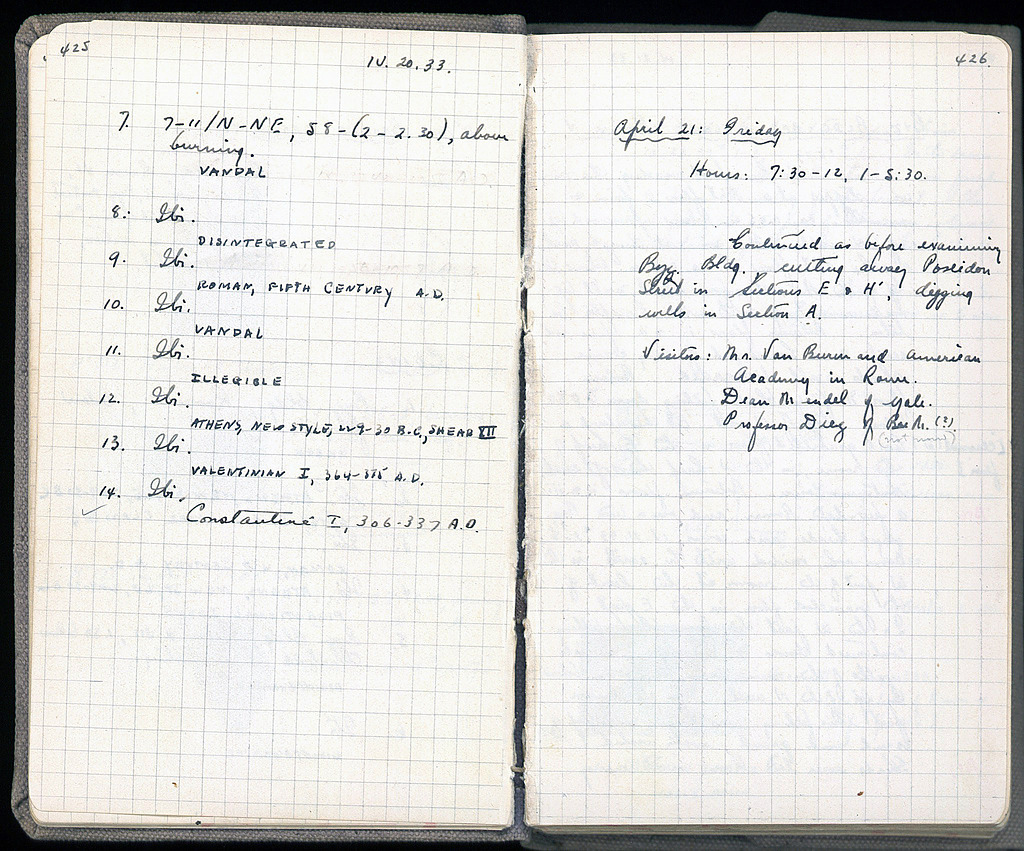 425
IV. 20. 33.
7. 7-11/N-NE, 58-(2-2.30), above
burning.
VANDAL
8. Ibi.
DISINTEGRATED
9. Ibi.
ROMAN, FIFTH CENTURY A.D.
10. Ibi.
VANDAL
11. Ibi.
ILLEGIBLE
12. Ibi.
ATHENS, NEW STYLE, 229-30 B.C., SHEAR XII
13. Ibi.
VALENTINIAN I, 364-375 A.D.
14. Ibi.
Constantine I, 306-337 A.D.
426.
April 21: Friday
Hours: 7:30-12, 1-5:30.
Continued as before examining
Byz. Bldg., cutting away Poseidon
Street in Sections E & H', digging
wells in Section A.
Visitors: Mr. Van Buren and American
Academy in Rome.
Dean Mendel of Yale.
Professor Diez of (?)